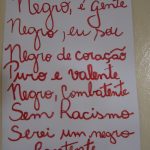 Negro, é Gente
Negro, eu, sou
Negro de coração
Puro e valente
Negro, Combatente
Sem Racismo
Serei um negro
Contente